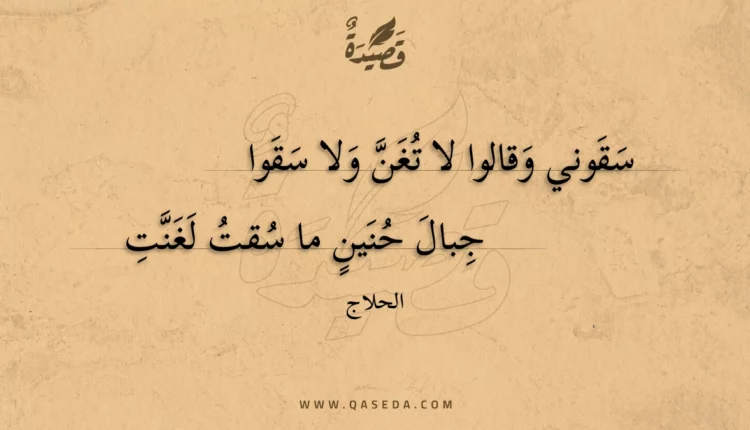 قَصِيْدَةٌ
سَقَوني وَقالوا لا تُغَنَّ وَلا سَقَوا
جِبالَ حُنَينٍ ما سُقتُ لَغَنَّتِ
الحلاج
WWW.QASEDA.COM